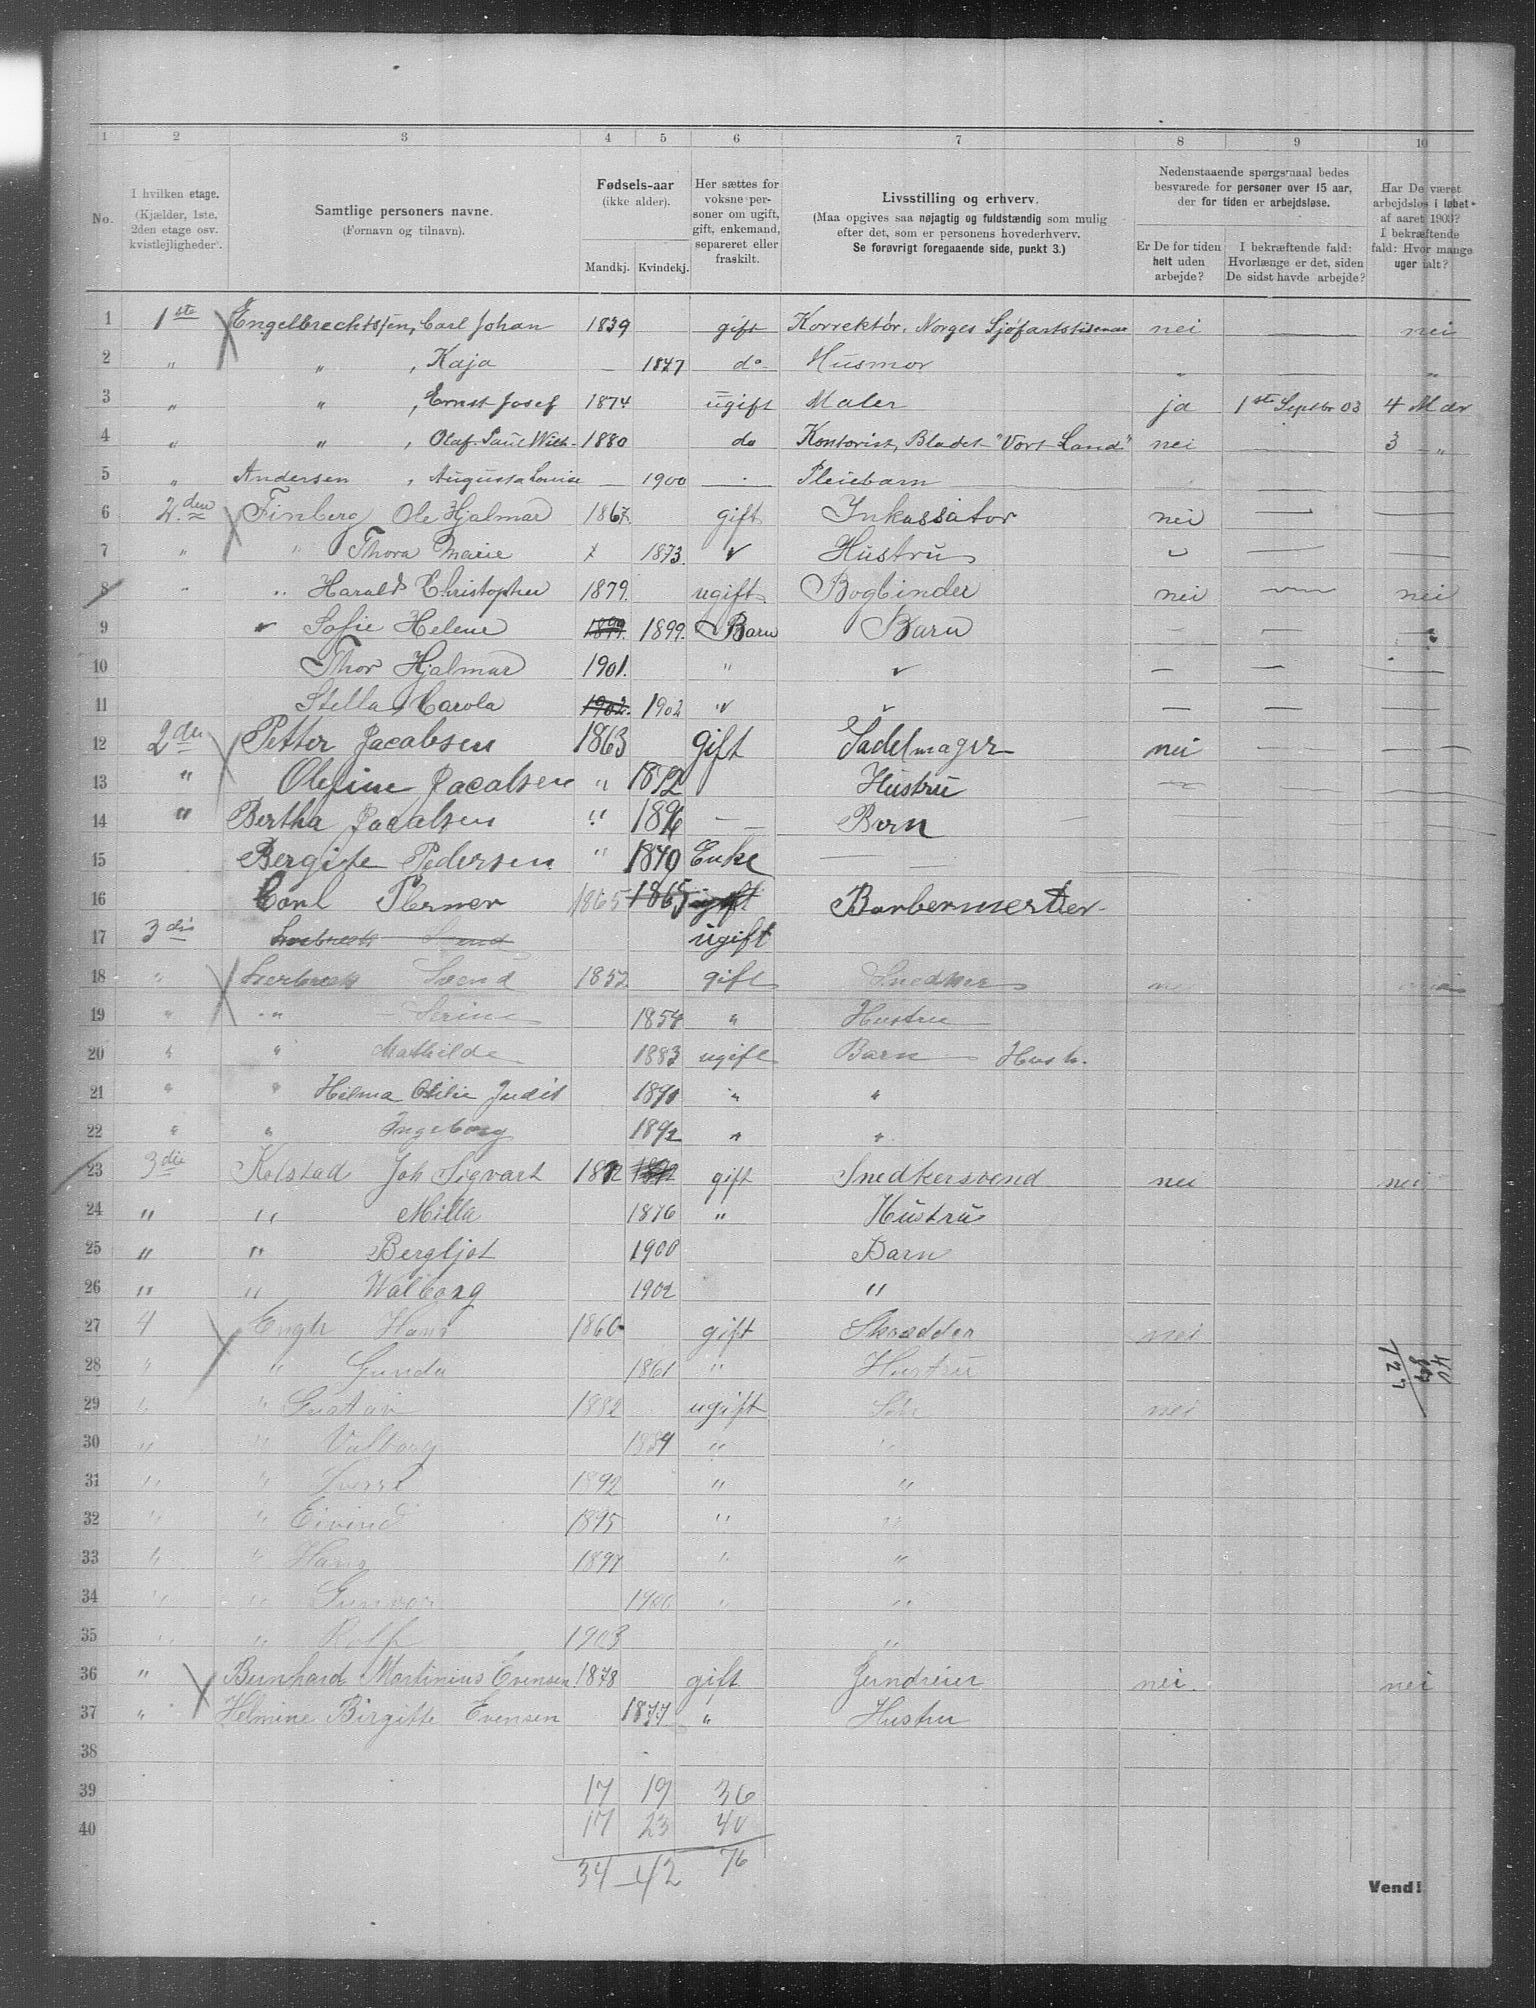 1 2 3 4 5 6 7 8 9 10
No.
I hvilken etage. (Kjælder, 1ste, 2den etage osv. kvistlejligheder).
Samtlige personers navne. (Fornavn og tilnavn).
Fødsels-aar (ikke alder).
Mandkj. Kvindekj.
Her sættes for voksne personer om ugift, gift, enkemand, separeret eller fraskilt.
Livsstilling og erhverv.
(Maa opgives saa nøjagtig og fuldstændig som mulig efter det, som er personens hovederhverv.
Se forøvrigt foregaaende side, punkt 3.)
Nedenstaaende spørgsmaal bedes besvarede for personer over 15 aar, der for tiden er arbejdsløse.
Er De for tiden helt uden arbejde?
I bekræftende fald: Hvorlænge er det, siden De sidst havde arbejde?
Har De været arbejdsløs i løbet af aaret 1903? I bekræftende fald: Hvor mange uger ialt?
1 1ste Engelbrechtsen, Carl Johan 1839 gift Korrektør, Norges Sjøfartstidende nei — nei
2 " " , Kaja — 1847 do Husmor " "
3 " " , Ernst Josef 1874 ugift Maler ja 1ste Septbr 03 4 Mdr
4 " " , Olaf Paul Wilh. 1880 do Kontorist, Bladet "Vort Land" nei — 3 "
5 " Andersen , Augusta Lovise — 1900 — Pleiebarn
6 2den Finberg Ole Hjalmar 1867 gift Inkassator nei — —
7 " " Thora Marie 1873 " Hustru " — —
8 " " Harald Christopher 1879 ugift Bogbinder nei — nei
9 " Sofie Helene 1899 1899 Barn Barn — —
10 Thor Hjalmar 1901 " " — — —
11 Stella Carola 1902 1902 " " — — —
12 2den Petter Jacobsen 1863 gift Sadelmager nei — —
13 " Olefine Jacobsen " 1872 Hustru —
14 " Bertha Jacobsen " 1896 — Barn
15 Bergite Pedersen " 1840 Enke —
16 Carl Perner 1865 1865 ugift Barbermester
17 3die ugift
18 " Svend 1852 gift Snedker nei
19 " " Serine 1854 " Hustru
20 " " Mathilde 1883 ugift Barn Hush.
21 " " Hilma Otilie Judit 1890 " "
22 " " Ingeborg 1892 " "
23 3die Kolstad Joh Sigvart 1872 1872 gift Snedkersvend nei nei
24 " " Milla 1876 " Hustru
25 " " Bergljot 1900 Barn
26 " " Walborg 1902 "
27 4 Engh Hans 1860 gift Skrædder nei
28 " " Gunda 1861 " Hustru
29 " " Gustav 1882 ugift Søn nei
30 " " Valborg 1889 " "
31 " " Sverre 1892 " "
32 " " Eivind 1895 " "
33 " " Hans 1897 " "
34 " " Gunvor 1900 " "
35 " " Rolf 1903 "
36 " Bernhard Martinius Evensen 1878 gift nei nei
37 " Helmine Birgitte Evensen 1877 " Hustru
38
39 17 19 36
40 17 23 40
34 42 76
Vend!